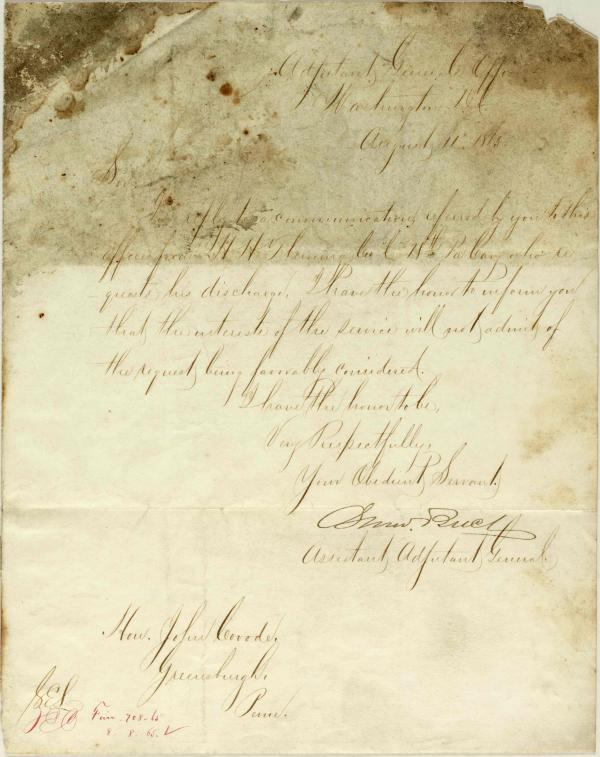 Adjutant General's Office
Washington, D.C.
August 11" 1865.
Sir,
In reply to a communication, referred by you to this
office from H. H. Fleming, Co. C 4th Pa Cav, who re
quests his discharge, I have the honor to inform you
that the interests of the service will not admit of
the request being favorably considered.
I have the honor to be,
Very Respectfully,
Your Obedient Servant,
Assistant Adjutant General.
Hon. John Covode,
Greensburgh,
Penn.
708-65
8. 8. 65.